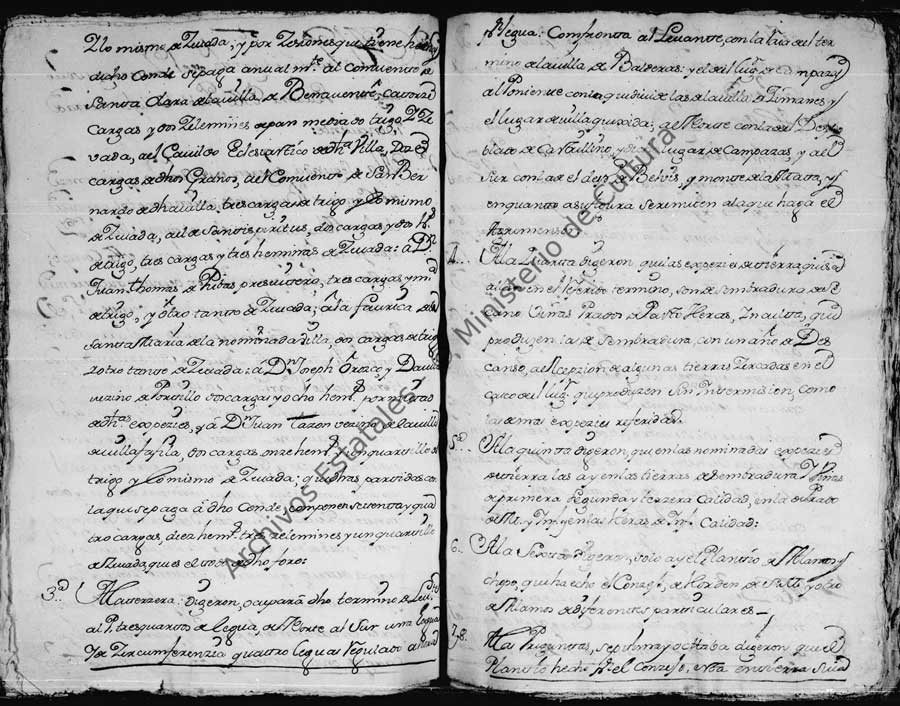 Y lo mismo de Zevada; y por Zesiones que tiene hechas
dicho Conde se paga anualmte. al Comvento de
Santa Clara de la villa de Benavente, catorze
Cargas y dos Zelemines de pan mediado trigo y Ze
vada, al Cavildo Eclesiastico de dha. Villa, Doze
cargas de dhos Granos, al Comvento de San Ber
nardo de dha villa tres cargas de trigo y lo mismo
de Zevada, al de Santispiritus, dos cargas y dos
de trigo, tres cargas y tres heminas de Zevada: a Dn.
Juan Thomas de Ribas presvitero, tres cargas y
de trigo, y otro tanto de Zevada; a la favrica de
Santa Maria de la nominada villa, dos cargas de trigo
y otro tanto de Zevada: a Dn. Joseph Orozco y
vezino de Portillo dos cargas y ocho hem. por mitad
de dhas. expezies, y a Dn. Juan Tazon vezino de la villa
de villafafila, dos cargas onze hem. y un quartillo de
trigo y lo mismo de Zevada: que dhas partidas con
la que se paga a dho Conde, componen setenta y qua
tro cargas, diez hem. tres zelemines y un quartillo
de Zevada, que es el todo de dho foro:
3.a A la terzera: Digeron, ocupara dho termino de Levte.
al P. tres quartos de legua, de Norte al Sur una legua
y de Zircumferenzia quatro leguas regulado a
legua: Comfronta al Levante, con la raia del ter
mino de la villa de Valderas: y el del lug. de Campazas
al Poniente con la que divide las de la villa de Zimanes y
el lugar de villaquexida; al Norte con la del
blado de Carvillino, y del lugar de Campazas, y al
Sur con la de el desp. de Belvis, y monte de la Mata, y
en quanto a su figura se remiten a la que haga el
Agrimensor.
4. A la Quarta digeron, que las expezies de tierra que se
allan en el referido termino, son de sembradura de se
cano Viñas Prados de Pasto Heras, Inculta, que
produzen las de sembradura, con un año de Des
canso, a excepzion de algunas tierras Zercadas en el
casco del lug. que produzen sin intermision, como
las demas expezies referidas.
5.a A la quinta digeron, que en las nominadas expezies
de tierra las ay en las tierras de sembradura y Viñas
de primera segunda y terzera Calidad, en la de Prado
de Me. y Inf. y en las Heras de Inf. Calidad:
6. A la Sexta digeron, solo ay el Plantio de Alamos y
chopo, que ha echo el Conzejo, de Horden de y otro
de Alamos de diferentes particulares
7.8. A las Preguntas, septima y octaba digeron que el
Plantio hecho pr. el Conzejo, esta en tierra suia
Archivos Estatales, Ministerio de Cultura